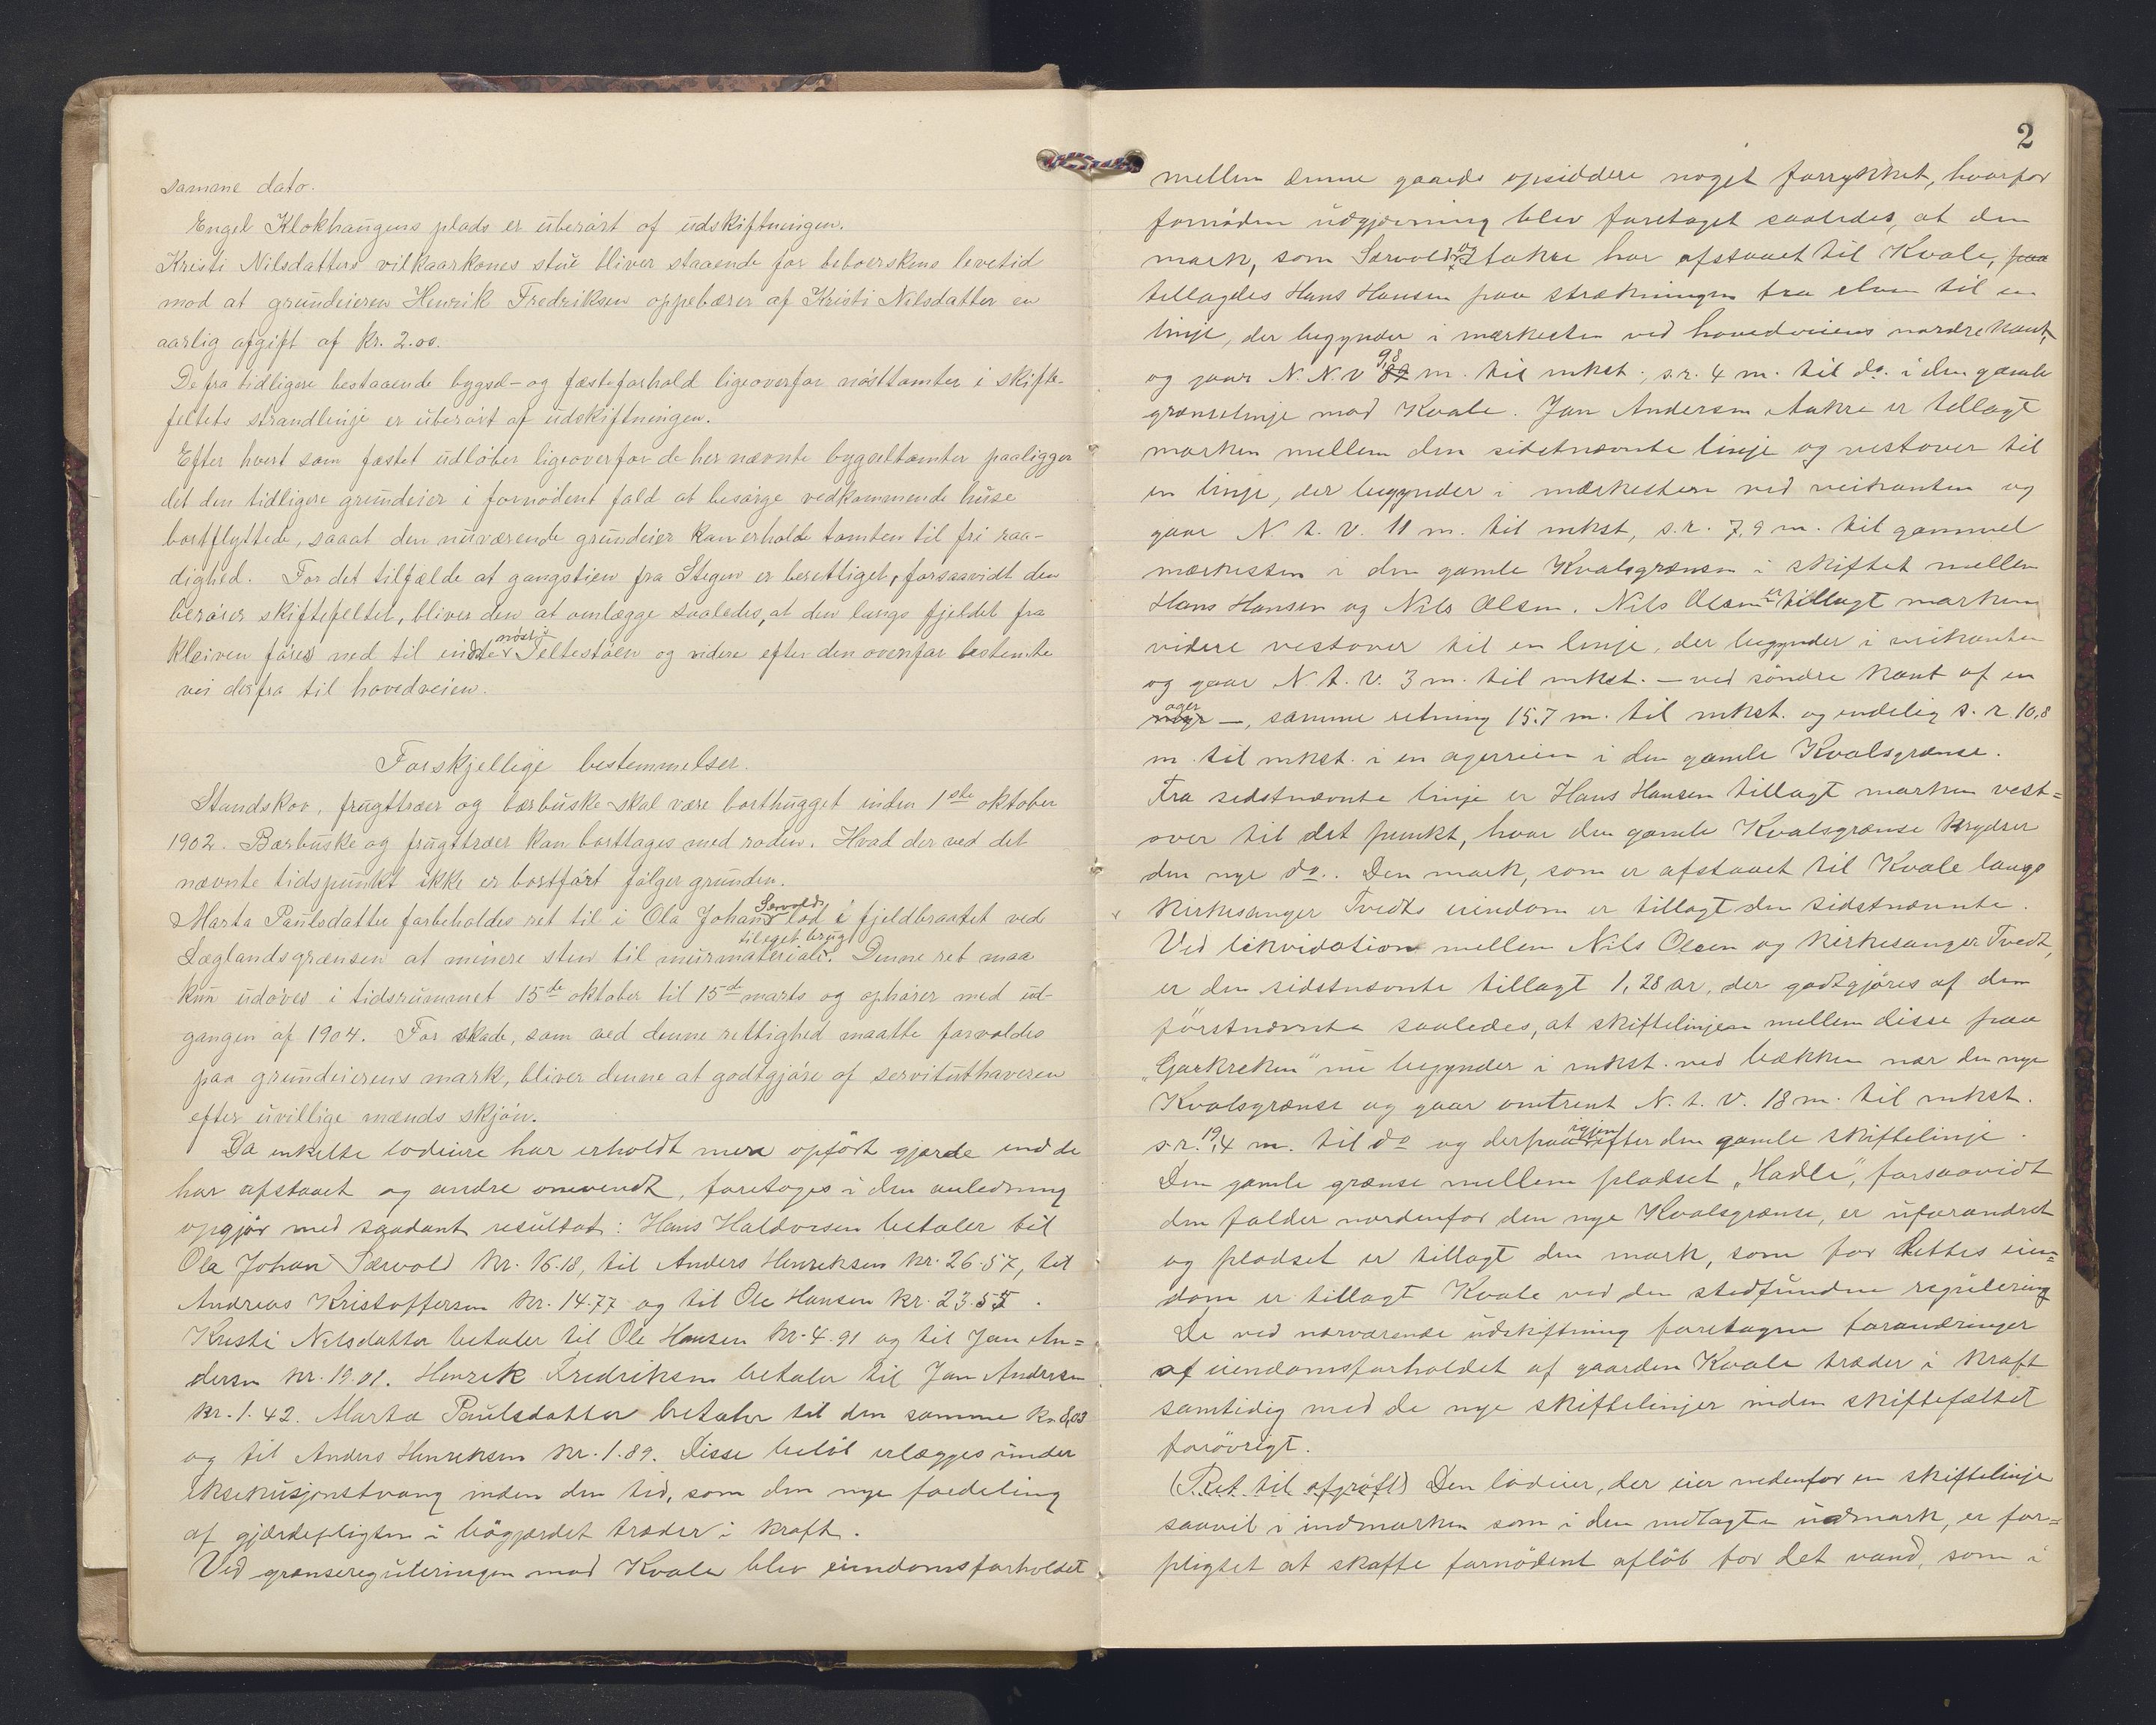 samme dato.
Engel Klokhaugens plads er uberørt af udskiftningen.
Kristi Nilsdatters vilkaarkones stue bliver staaende for beboerskens levetid
mod at grundeieren Henrik Fredriksen oppebærer af Kristi Nilsdatter en
aarlig afgift af kr. 2.00.
De fra tidligere bestaaende bygsel- og fæsteforhold ligeoverfor nøsttomter i skifte-
feltets strandlinje er uberørt af udskiftningen.
Efter hvert som fæstet udløber ligeoverfor de her nævnte bygseltomter paaligger
det den tidligere grundeier i fornødent fald at besørge vedkommende huse
bortflyttede, saaat den nuværende grundeier kan erholde tomten til fri raa-
dighed. For det tilfælde at gangstien fra Stegen er berettiget, forsaavidt den
berører skiftefeltet, bliver den at omlægge saaledes, at den langs fjeldet fra
Kleiven føres ned til indre nøst i Teltestøen og videre efter den ovenfor bestemte
vei derfra til hovedveien.
Forskjellige bestemmelser.
Standskov, frugttræer og bærbuske skal være borthugget inden 1ste oktober
1902. Bærbuske og frugttræer kan borttages med roden. Hvad der ved det
nævnte tidspunkt ikke er bortført følger grunden.
Marta Paulsdatter forbeholdes ret til i Ola Johan Særvolds lod i fjeldbraatet ved
Sæglandsgrænsen at minere sten til murmateriale til eget brug. Denne ret maa
kun udøves i tidsrummet 15de oktober til 15de marts og ophører med ud-
gangen af 1904. For skade, som ved denne rettighed maatte forvoldes
paa grundeierens mark, bliver denne at godtgjøre af servituthaveren
efter uvillige mænds skjøn.
Da enkelte lodeiere har erholdt mere opført gjærde end de
har afstaaet og andre omvendt, foretages i den anledning
opgjør med saadant resultat: Hans Haldorsen betaler til
Ola Johan Særvold kr. 16.18, til Anders Henriksen kr. 26.57, til
Andreas Kristoffersen kr. 14.77 og til Ole Hansen kr. 23.55.
Kristi Nilsdatter betaler til Ole Hansen kr. 4.91 og til Jan An=
dersen kr. 19.01. Henrik Fredriksen betaler til Jan Andersen
kr. 1.42. Marta Paulsdatter betaler til den samme kr. 8,03
og til Anders Henriksen kr. 1.89. Disse beløb erlægges under
eksekusjonstvang inden den tid, som den nye fordeling
af gjærdepligten i bøgjærdet træder i kraft.
Ved grænsereguleringen mod Kvale blev eiendomsforholdet
2
mellem denne gaards opsiddere noget forrykket, hvorfor
fornøden udgjævning blev foretaget saaledes, at den
mark, som Særvold og Aakre har afstaaet til Kvale, paa
tillagdes Hans Hansen paa strækningen fra elven til en
linje, der begynder i mærkesten ved hovedveiens nordre kant
og gaar N. N. V 9,8 m. til mkst., s.r. 4 m. til do. i den gamle
grænselinje mod Kvale. Jan Andersen Aakre er tillagt
marken mellem den sidstnævnte linje og vestover til
en linje, der begynder i mærkesten ved veikanten og
gaar N. t. V. 11 m. til mkst, s.r. 7,9 m. til gammel
mærkesten i den gamle Kvalsgrænse i skiftet mellem
Hans Hansen og Nils Olsen. Nils Olsen er tillagt marken
videre vestover til en linje, der begynder i veikanten
og gaar N. t. V. 3 m. til mkst. – ved søndre kant af en
ager –, samme retning 15.7 m. til mkst. og endelig s. r. 10,8
m. til mkst. i en agerrein i den gamle Kvalsgrænse.
Fra sidstnævnte linje er Hans Hansen tillagt marken vest=
over til det punkt, hvor den gamle Kvalsgrænse krydser
den nye do. Den mark, som er afstaaet til Kvale langs
kirkesanger Tvedts eiendom er tillagt den sidstnævnte.
Ved likvidation mellem Nils Olsen og kirkesanger Tvedt,
er den sidstnævnte tillagt 1,28 ar, der godtgjøres af den
førstnævnte saaledes, at skiftelinjen mellem disse paa
„Garkreken" nu begynder i mkst. ved bækken nær den nye
Kvalsgrænse og gaar omtrent N. t. V. 18 m. til mkst.
s.r. 19,4 m. til do og derfra igjen efter den gamle skiftelinje.
Den gamle grænse mellem pladset „Hadle", forsaavidt
den falder nordenfor den nye Kvalsgrænse, er uforandret
og pladset er tillagt den mark, som for dettes eien=
dom er tillagt Kvale ved den stedfundne regulering
De ved nærværende udskiftning foretagne forandringer
af eiendomsforholdet af gaarden Kvale træder i kraft
samtidig med de nye skiftelinjer inden skiftefeltet
forøvrigt.
(Ret til afgrøft) Den lodeier, der eier nedenfor en skiftelinje
saavel i indmarken som i den medtagte udmark, er for=
pligtet at skaffe fornødent afløb for det vand, som i